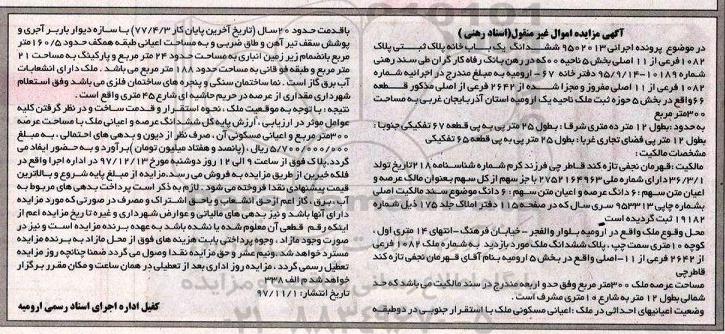 آگهی مزایده اموال غیر منقول(اسناد رهنی)
در موضوع پرونده اجرایی ۹۵۰۲۰۱۳ ششدانگ یک باب خانه پلاک ثبتی پلاک
۱۰۸۲ فرعی از ۱۱ اصلی بخش ۵ ناحیه ۰۰ که در رهن بانک رفاه کارگران طی سند رهنی
شماره ۱۰۱۸۹-۹۵/۹/۱۴ دفترخانه ۶۷ - ارومیه به مبلغ مندرج در اجرائیه شماره
۱۰۸۲ فرعی از ۱۱ اصلی مفروز و مجزا شده از ۲۶۴۲ فرعی از اصلی مذکور قطعه
۶۶ واقع در بخش ۵ حوزه ثبت ملک ناحیه یک ارومیه استان آذربایجان غربی به مساحت
۳۰۰ مترمربع
به حدود :بطول ۱۲ متر ده متری شرقا : بطول ۲۵ متر پی به پی قطعه ۶۷ تفکیکی جنوبا :
بطول ۱۲ متر پی فضای تجاری غربا : بطول ۲۵ متر پی به پی قطعه ۶۵ تفکیکی
مشخصات مالکیت :
مالکیت : قهرمان نجفی تازه کند قاطرچی فرزند کرم شماره شناسنامه ۲۱۸ تاریخ تولد
۳۶/۳/۱ دارای شماره ملی ۲۷۵۲۱۶۴۹۶۳ با جز سهم از کل سهم بعنوان مالک عرصه و
اعیان متن سهم : ۶ دانگ عرصه و اعیان متن سهم : ۶ دانگ موضوع سند مالکیت اصلی
بشماره چاپی ۹۵۳۳۱۳ سری سال که در صفحه ۱۱۵ دفتر املاک جلد ۱۷۵ ذیل شماره
۱۹۱۸۲ ثبت گردیده است
محل وقوع ملک واقع در ارومیه بلوار والفجر - خیابان فرهنگ - انتهای ۱۴ متری اول ،
کوچه ۱۰ متری سمت چپ . پلاک ششدانگ ملک مورد بازدید به شماره ملک ۱۰۸۲ فرعی
از ۲۶۴۲ فرعی از ۱۱-اصلی واقع در بخش ۵ ارومیه بنام آقای قهرمان نجفی تازه کند
قاطرچی
مساحت عرصه ملک ۳۰۰ متر مربع وفق حدود اربعه مندرج در سند مالکیت می باشد که حد
شمالی بطول ۱۲ متر به شارع ۱۰ متری مشرف است .
وضعیت اعیانیهای احداثی در ملک :اعیانی مسکونی ملک با استقرار جنوبی در دو طبقه
باقدمت حدود ۲۰ سال (تاریخ آخرین پایان کار ۷۷/۴/۳) با سازه دیوار باربر آجری و
پوشش سقف تیر آهن و طاق ضربی و به مساحت اعیانی طبقه همکف حدود ۱۶۰/۵ متر
مربع بانضمام زیر زمین انباری به مساحت حدود ۲۴ متر مربع و پارکینگ به مساحت ۲۱
متر مربع و طبقه فوقانی به مساحت حدود ۱۸۸ متر مربع می باشد . ملک دارای انشعابات
آب برق گاز است . نما ساختمان سنگی و پنجره های ساختمان فلزی می باشد وفق استعلام
شهرداری مقداری از عرصه در حریم حاشیه ای شارع ۴۵ متری واقع است .
نتیجه : با توجه به موقعیت ملک ، نحوه استقرار و قدمت ساخت و در نظر گرفتن کلیه
عوامل موثر در ارزیابی ، ارزش پایه کل ششدانگ عرصه و اعیانی ملک با مساحت عرصه
۳۰۰ متر مربع و اعیانی مسکونی آن ، صرف نظر از دیون و بدهی های احتمالی ، به مبلغ
۵/۷۰۰/۰۰۰/۰۰۰ ریال ، (پانصد و هفتاد میلیون تومان ) برآورد و به حضور ایفاد می
گردد. پلاک فوق از ساعت ۹ الی ۱۲ روز دوشنبه مورخ ۹۷/۱۲/۱۳ در اداره اجرا واقع در
فلکه خیرین از طریق مزایده به فروش می رسد.مزایده از مبلغ پایه شروع و بالاترین
قیمت پیشنهادی نقدا فروخته می شود . لازم به ذکر است پرداخت بدهی های مربوط به
آب ، برق ، گاز اعم از حق انشعاب و یا حق اشتراک و مصرف در صورتی که مورد مزایده
دارای آنها باشد و نیز بدهی های مالیاتی و عوارض شهرداری و غیره تا ریخ مزایده اعم از
اینکه رقم قطعی آن معلوم شده یا نشده باشد به عهده برنده مزایده است و نیز در
صورت وجود مازاد ، وجوه پرداختی بابت هزینه های فوق از محل مازاد به برنده مزایده
مسترد خواهد شد. ونیم عشر و حق مزایده نقدا وصول می گردد ضمنا چنانچه روز مزایده
تعطیل رسمی گردد ، مزایده روز اداری بعد از تعطیلی در همان ساعت و مکان مقرر برگزار
خواهد شد م الف ۳۳۸
تاریخ انتشار : ۹۷/۱۱/۱
کفیل اداره اجرای اسناد رسمی ارومیه